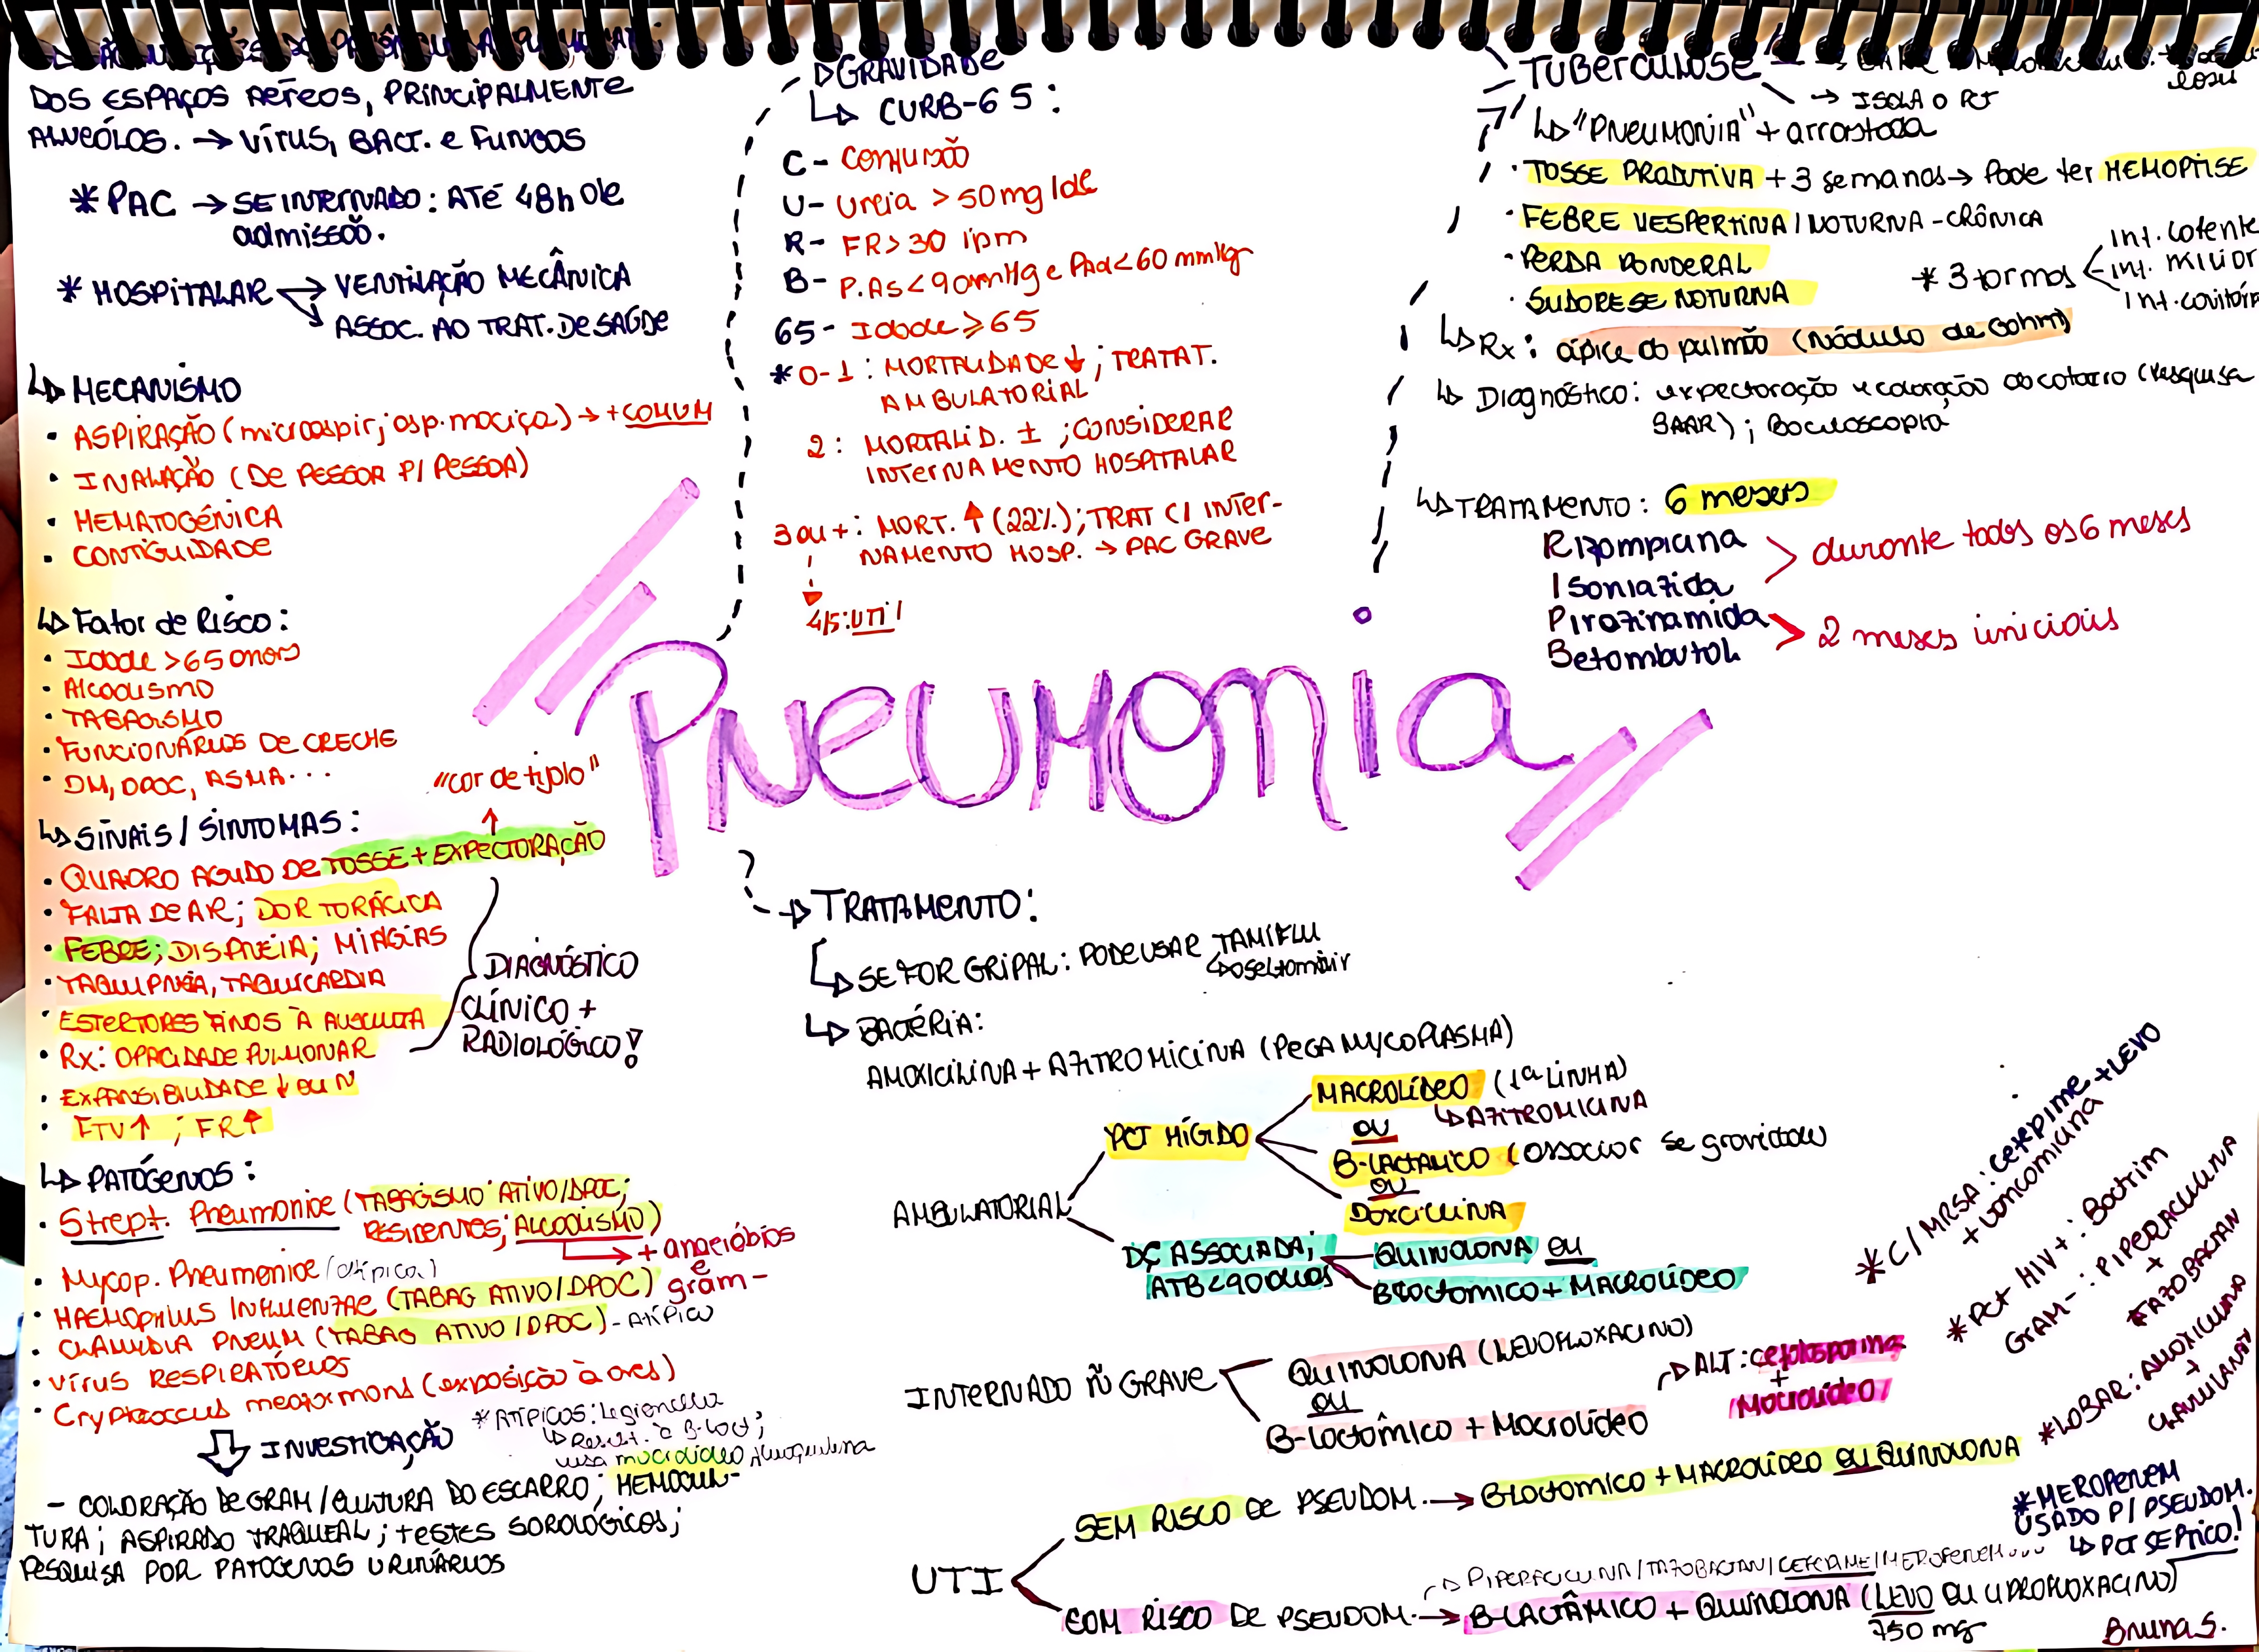 DOS ESPAÇOS AÉREOS, PRINCIPALMENTE
ALVEÓLOS. → VÍRUS, BACT. e FUNGOS
* PAC → SE INTERNADO: ATÉ 48h de
admissão.
* HOSPITALAR → VENTILAÇÃO MECÂNICA
→ ASSOC. AO TRAT. DE SAÚDE
↳ MECANISMO
• ASPIRAÇÃO (microaspir; asp. maciça) → + COMUM
• INALAÇÃO (DE PESSOA P/ PESSOA)
• HEMATOGÊNICA
• CONTIGUIDADE
↳ Fator de Risco:
• Idade > 65 anos
• Alcoolismo
• TABAGISMO
• FUNCIONÁRIOS DE CRECHE
• DM, DPOC, ASMA...
"cor de tijolo"
↳ SINAIS / SINTOMAS:
• QUADRO AGUDO DE TOSSE + EXPECTORAÇÃO
• FALTA DE AR; DOR TORÁCICA
• FEBRE; DISPNEIA; MIALGIAS
• TAQUIPNEIA, TAQUICARDIA
• ESTERTORES FINOS À AUSCULTA
• RX: OPACIDADE PULMONAR
• EXPANSIBILIDADE ↓ OU N
• FTV ↑ ; FR ↑
DIAGNÓSTICO
CLÍNICO +
RADIOLÓGICO!
↳ PATÓGENOS:
• Strept. Pneumoniae (TABAGISMO ATIVO/DPOC;
RESIDENTES; ALCOOLISMO)
→ + anaeróbios
e
gram -
• Mycop. Pneumoniae (atípica)
• HAEMOPHILUS INFLUENZAE (TABAG ATIVO/DPOC)
• CLAMIDIA PNEUM (TABAG ATIVO/DPOC) - Atípico
• VÍRUS RESPIRATÓRIOS
• Cryptococcus neoformans (exposição à aves)
* ATÍPICOS: Legionella
↳ Resist. à B-lact;
usa macrolídeo
⇩ INVESTIGAÇÃO
- COLORAÇÃO DE GRAM / CULTURA DO ESCARRO; HEMOCUL-
TURA; ASPIRADO TRAQUEAL; testes SOROLÓGICOS;
PESQUISA POR PATÓGENOS URINÁRIOS
GRAVIDADE
↳ CURB-65:
C - Confusão
U - Ureia > 50 mg/dL
R - FR > 30 ipm
B - P.As < 90 mmHg e PAd < 60 mmHg
65 - Idade ≥ 65
* 0-1: MORTALIDADE ↓; TRATAT.
AMBULATORIAL
2: MORTALID. ±; CONSIDERAR
INTERNAMENTO HOSPITALAR
3 ou +: MORT. ↑ (22%); TRAT C/ INTER-
NAMENTO HOSP. → PAC GRAVE
4/5: UTI!
Pneumonia
TUBERCULOSE
→ ISOLA O PCT
↳ "PNEUMONIA" + arrastada
• TOSSE PRODUTIVA + 3 semanas → Pode ter HEMOPTISE
• FEBRE VESPERTINA / NOTURNA - CRÔNICA
• PERDA PONDERAL
• SUDORESE NOTURNA
* 3 formas
Inf. latente
Inf. miliar
Inf. cavitária
↳ Rx: ápice do pulmão (nódulo de Gohn)
↳ Diagnóstico: expectoração e coloração do catarro (Pesquisa
BAAR); Baciloscopia
↳ TRATAMENTO: 6 meses
Rifampicina
Isoniazida
> durante todos os 6 meses
Pirazinamida
Betambutol
> 2 meses iniciais
→ TRATAMENTO:
↳ SE FOR GRIPAL: PODE USAR TAMIFLU
↳ oseltamivir
↳ BACTÉRIA:
AMOXICILINA + AZITROMICINA (PEGA MYCOPLASMA)
AMBULATORIAL
PCT HÍGIDO
MACROLÍDEO (1ª LINHA)
↳ AZITROMICINA
OU
B-LACTÂMICO (associar se gravidade
OU
DOXICILINA
DÇ ASSOCIADA;
ATB < 90 dias
QUINOLONA OU
Blactamico + MACROLÍDEO
INTERNADO Ñ GRAVE
QUINOLONA (LEVOFLOXACINO)
OU
B-lactâmico + Macrolídeo
→ ALT: cefalosporina
+
Macrolídeo
UTI
SEM RISCO DE PSEUDOM. → Blactamico + MACROLÍDEO OU QUINOLONA
→ PIPERACILINA/TAZOBACTAN/CEFEPIME/MEROPENEM...
COM RISCO DE PSEUDOM. → B-LACTÂMICO + QUINOLONA (LEVO OU CIPROFLOXACINO)
750 mg
* C/ MRSA: Cefepime + LEVO
+ Vancomicina
* PCT HIV+: Bactrim
GRAM -: PIPERACILINA
+
TAZOBACTAN
* LOBAR: AMOXICILINA
+
CLAVULANATO
* MEROPENEM
USADO P/ PSEUDOM.
↳ PCT SÉPTICO!
Bruna S.